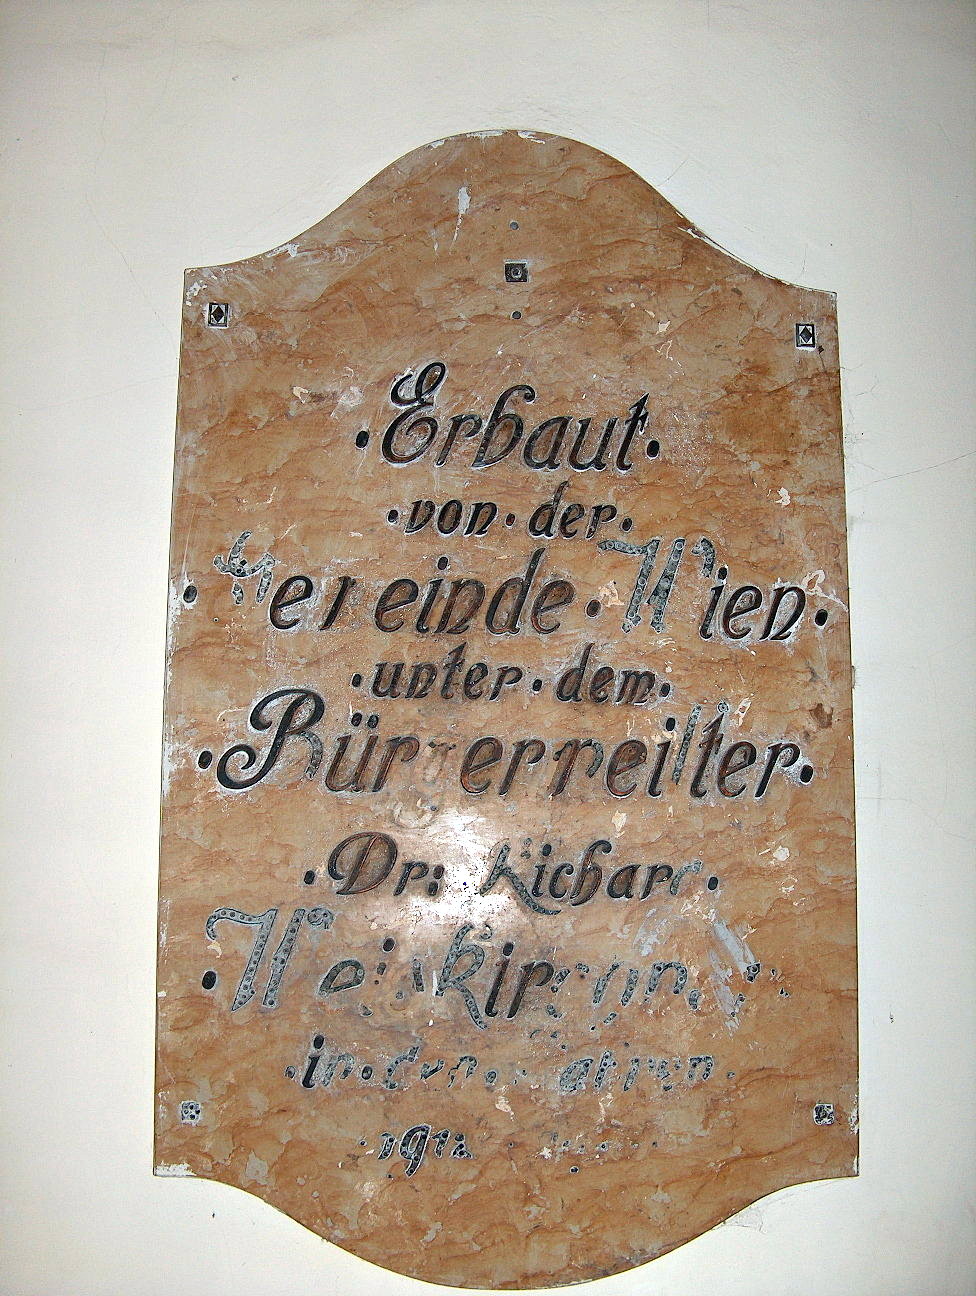 ·Erbaut·
·von·der·
·Gemeinde·Wien·
·unter·dem·
·Bürgermeister·
·Dr: Richard·
·Weiskirchner·
·in·den·Jahren·
·1912